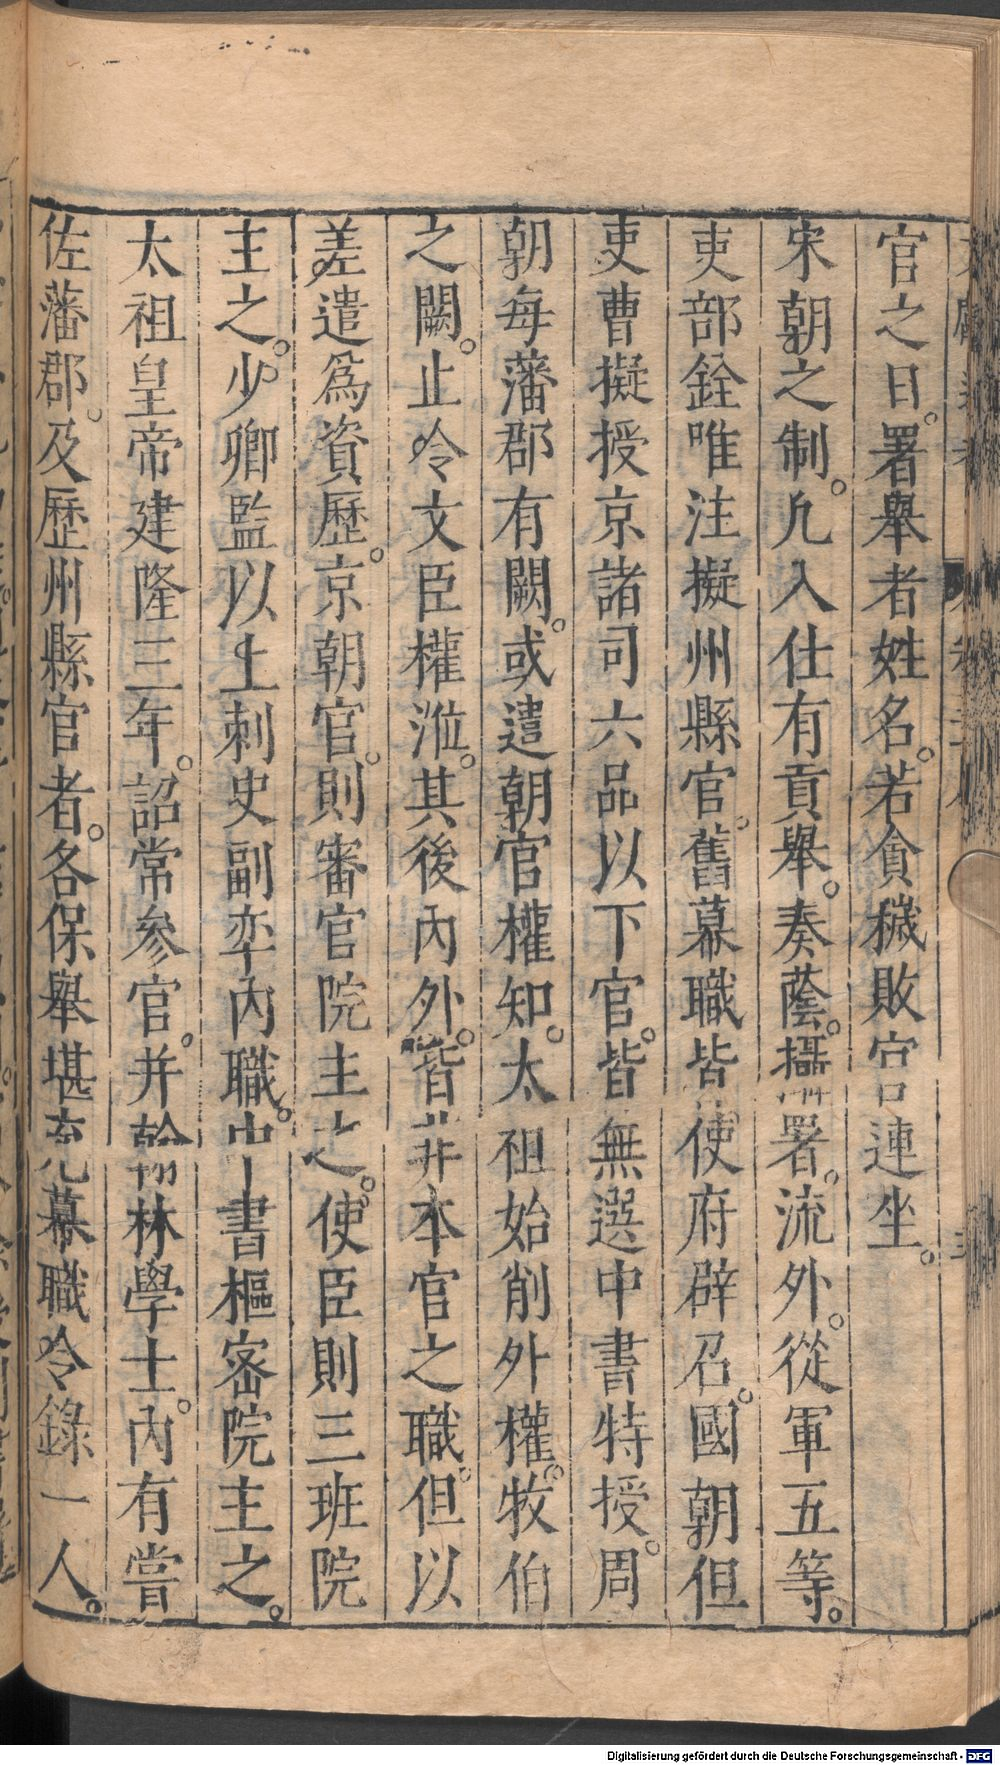 官之日。署舉者姓名。若貪穢敗官連坐。
宋朝之制。凡入仕有貢舉。奏蔭。攝署。流外。從軍五等。
吏部銓唯注擬州縣官。舊幕職皆使府辟召。國朝但
吏曹擬授京諸司六品以下官。皆無選中書特授。周
朝每藩郡有闕。或遣朝官權知。太祖始削外權。牧伯
之闕。止令文臣權涖。其後內外。皆非本官之職。但以
差遣爲資歷。京朝官。則審官院主之。使臣則三班院
主之。少卿監以上刺史副率內職。中書樞密院主之。
太祖皇帝建隆三年。詔常參官。并翰林學士。內有嘗
佐藩郡。及歷州縣官者。各保舉堪充幕職令錄一人。
Digitalisierung gefördert durch die Deutsche Forschungsgemeinschaft - DFG